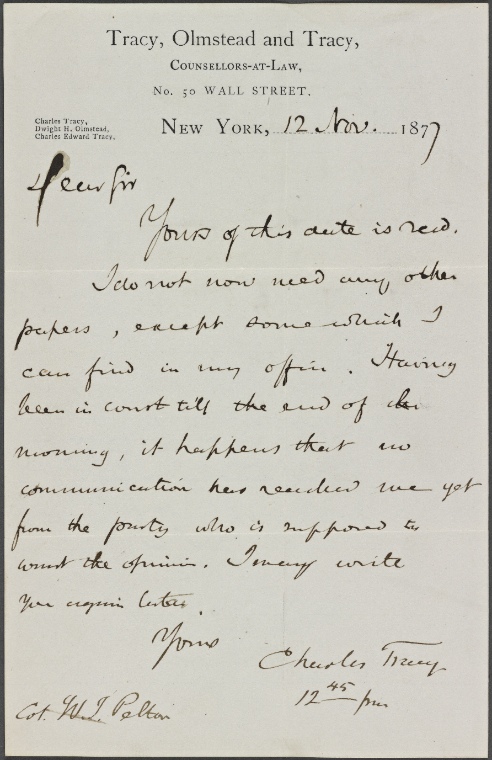 Tracy, Olmstead and Tracy,
Counsellors-at-Law,
No. 50 WALL STREET.
Charles Tracy,
Dwight H. Olmstead,
Charles Edward Tracy.
New York, 12 Nov. 1877
Dear Sir
Yours of this date is recd.
I do not now need any other
papers, except some which I
can find in my office. Having
been in court till the end of the
morning, it happens that no
communication has reached me yet
from the party who is supposed to
want the opinion. I may write
you again later.
Yours
Charles Tracy
12 45 pm
Col. W. T. Pelton